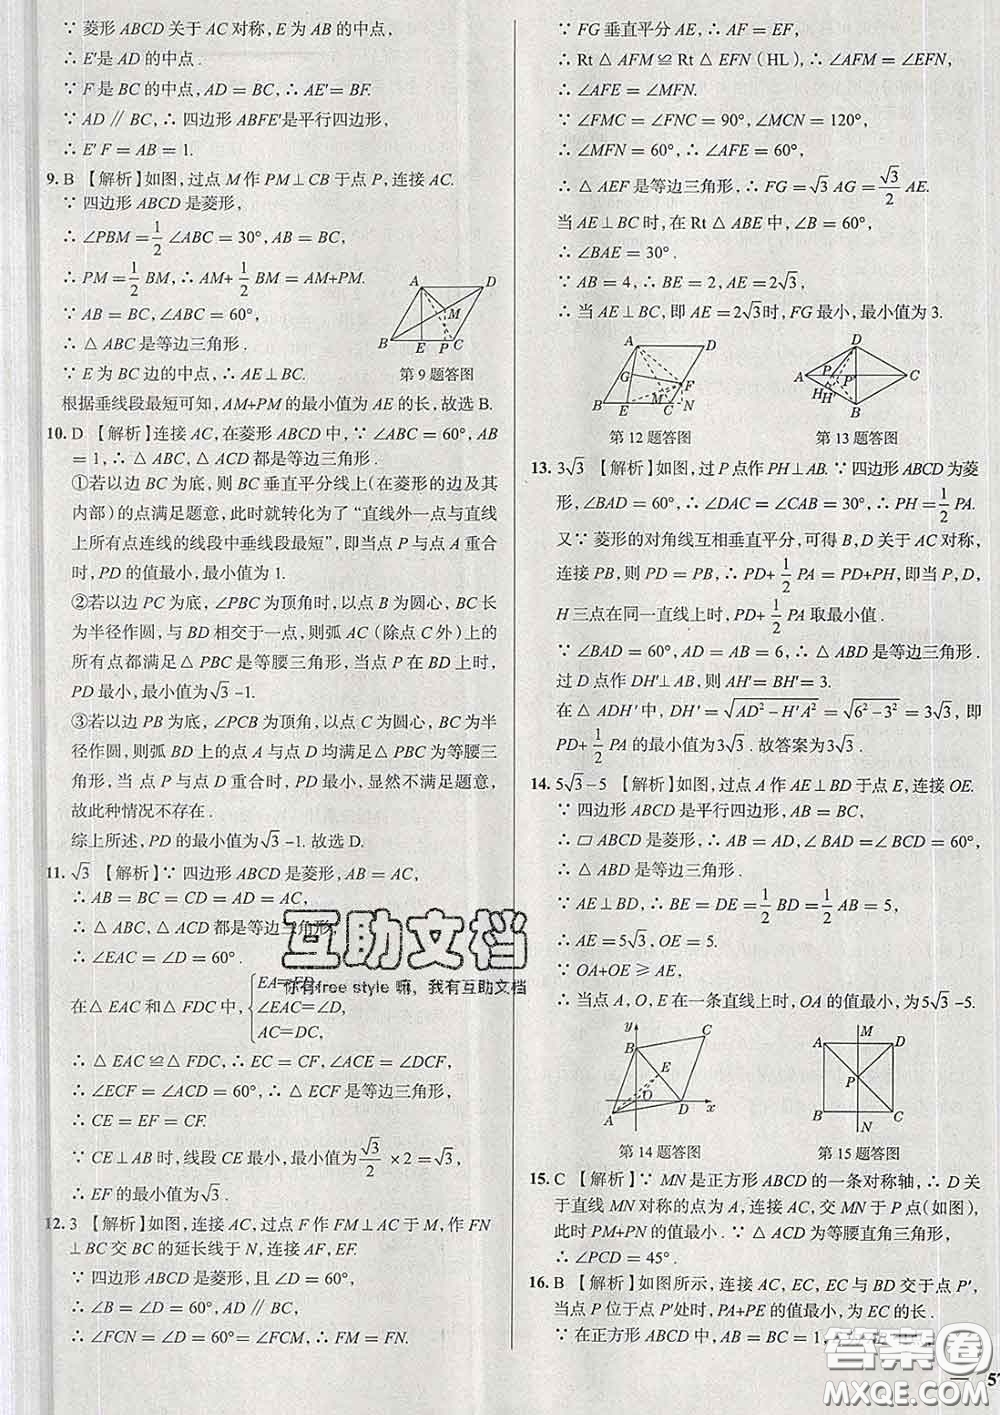 ∵ 菱形 ABCD 关于 AC 对称,E 为 AB 的中点,
∴ E′是 AD 的中点 .
∵ F 是 BC 的中点,AD = BC,∴ AE′= BF.
∵ AD ∥ BC,∴ 四边形 ABFE′是平行四边形,
∴ E′ F = AB = 1.
9. B 【解析】如图,过点 M 作 PM⊥CB 于点 P,连接 AC.
∵ 四边形 ABCD 是菱形,
∴ ∠PBM = 1/2 ∠ABC = 30°,AB = BC,
∴ PM = 1/2 BM,∴ AM+ 1/2 BM = AM+PM.
∵ AB = BC,∠ABC = 60°,
∴ △ ABC 是等边三角形 .
∵ E 为 BC 边的中点,∴ AE⊥BC.
A D M B E P C
第 9 题答图
根据垂线段最短可知,AM+PM 的最小值为 AE 的长,故选 B.
10. D 【解析】连接 AC,在菱形 ABCD 中,∵ ∠ABC = 60°,AB
= 1,∴ △ ABC,△ ACD 都是等边三角形 .
①若以边 BC 为底,则 BC 垂直平分线上(在菱形的边及其
内部)的点满足题意,此时就转化为了“直线外一点与直线
上所有点连线的线段中垂线段最短”,即当点 P 与点 A 重合
时,PD 的值最小,最小值为 1.
②若以边 PC 为底,∠PBC 为顶角时,以点 B 为圆心,BC 长
为半径作圆,与 BD 相交于一点,则弧 AC(除点 C 外)上的
所有点都满足 △ PBC 是等腰三角形,当点 P 在 BD 上时,
PD 最小,最小值为√3 -1.
③若以边 PB 为底,∠PCB 为顶角,以点 C 为圆心,BC 为半
径作圆,则弧 BD 上的点 A 与点 D 均满足 △ PBC 为等腰三
角形,当 点 P 与点 D 重合时,PD 最小,显然不满足题意,
故此种情况不存在 .
综上所述,PD 的最小值为√3 -1. 故选 D.
11. √3 【解析】∵ 四边形 ABCD 是菱形,AB = AC,
∴ AB = BC = CD = AD = AC,
∴ △ ABC,△ ACD 都是等边三角形,
∴ ∠EAC = ∠D = 60° .
在 △ EAC 和 △ FDC 中, { EA=FD, ∠EAC=∠D, AC=DC,
∴ △ EAC ≌ △ FDC,∴ EC = CF,∠ACE = ∠DCF,
∴ ∠ECF = ∠ACD = 60°,∴ △ ECF 是等边三角形,
∴ CE = EF = CF.
∵ CE⊥AB 时,线段 CE 最小,最小值为 √3/2 ×2 = √3,
∴ EF 的最小值为√3 .
12. 3 【解析】如图,连接 AC,过点 F 作 FM⊥AC 于 M,作 FN
⊥BC 交 BC 的延长线于 N,连接 AF,EF.
∵ 四边形 ABCD 是菱形,且 ∠D = 60°,
∴ ∠B = ∠D = 60°,AD ∥ BC,
∴ ∠FCN = ∠D = 60° = ∠FCM,∴ FM = FN.
∵ FG 垂直平分 AE,∴ AF = EF,
∴ Rt △ AFM ≌ Rt △ EFN(HL),∴ ∠AFM = ∠EFN,
∴ ∠AFE = ∠MFN.
∵ ∠FMC = ∠FNC = 90°,∠MCN = 120°,
∴ ∠MFN = 60°,∴ ∠AFE = 60°,
∴ △ AEF 是等边三角形,∴ FG = √3 AG = √3/2 AE.
当 AE⊥BC 时,在 Rt △ ABE 中,∠B = 60°,
∴ ∠BAE = 30° .
∵ AB = 4,∴ BE = 2,∴ AE = 2√3,
∴ 当 AE⊥BC,即 AE = 2√3时,FG 最小,最小值为 3.
A D G F M B E C N
第 12 题答图
D A P C H H′ B
第 13 题答图
13. 3√3 【解析】如图,过 P 点作 PH⊥AB. ∵ 四边形 ABCD 为菱
形,∠BAD = 60°,∴ ∠DAC = ∠CAB = 30°,∴ PH = 1/2 PA.
又∵ 菱形的对角线互相垂直平分,可得 B,D 关于 AC 对称,
连接 PB,则 PD = PB,∴ PD+ 1/2 PA = PD+PH,即当 P,D,
H 三点在同一直线上时,PD+ 1/2 PA 取最小值 .
∵ ∠BAD = 60°,AD = AB = 6,∴ △ ABD 是等边三角形 .
过 D 点作 DH′⊥AB,则 AH′= BH′= 3.
在 △ ADH′中,DH′= √(AD²-H′A²) = √(6²-3²) = 3√3,即
PD+ 1/2 PA 的最小值为3√3 . 故答案为3√3 .
14. 5√3 -5 【解析】如图,过点 A 作 AE⊥BD 于点 E,连接 OE.
∵ 四边形 ABCD 是平行四边形,AB = AD,
∴ ▱ ABCD 是菱形,∴ AB = AD = BC,∠BAD = ∠C = 60°,
∴ △ ABD 是等边三角形 .
∵ AE⊥BD,∴ BE = DE = 1/2 BD = 1/2 AB = 5,
∴ AE = 5√3,OE = 5.
∵ OA+OE ≥ AE,
∴ 当点 A,O,E 在一条直线上时,OA 的值最小,为5√3 -5.
y C B E O D x A
第 14 题答图
M A D P B C N
第 15 题答图
15. C 【解析】∵ MN 是正方形 ABCD 的一条对称轴,∴ D 关
于直线 MN 对称的点为 A,连接 AC,交 MN 于 P 点(如图),
此时 PM+PN 的值最小,∵ △ ADC 为等腰直角三角形,
∴ ∠PCD = 45° .
16. B 【解析】如图所示,连接 AC,EC,EC 与 BD 交于点 P′,
当点 P 位于点 P′处时,PA+PE 的值最小,为 EC 的长 .
∵ 在正方形 ABCD 中,AB = BC = 1,
互助文档
你有free style 嘛，我有互助文档
答案卷
MXQE.COM
— 57